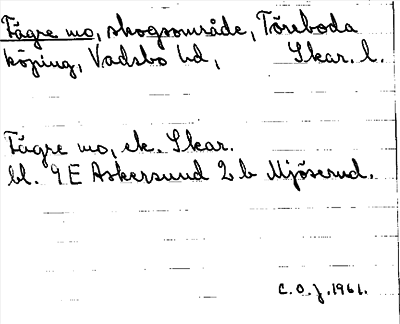 Fägre mo, skogsområde, Töreboda
köping, Vadsbo hd, Skar. l.
Fägre mo, ek. Skar.
bl. 9E Askersund 2b Mjöserud.
C.O.J. 1961.